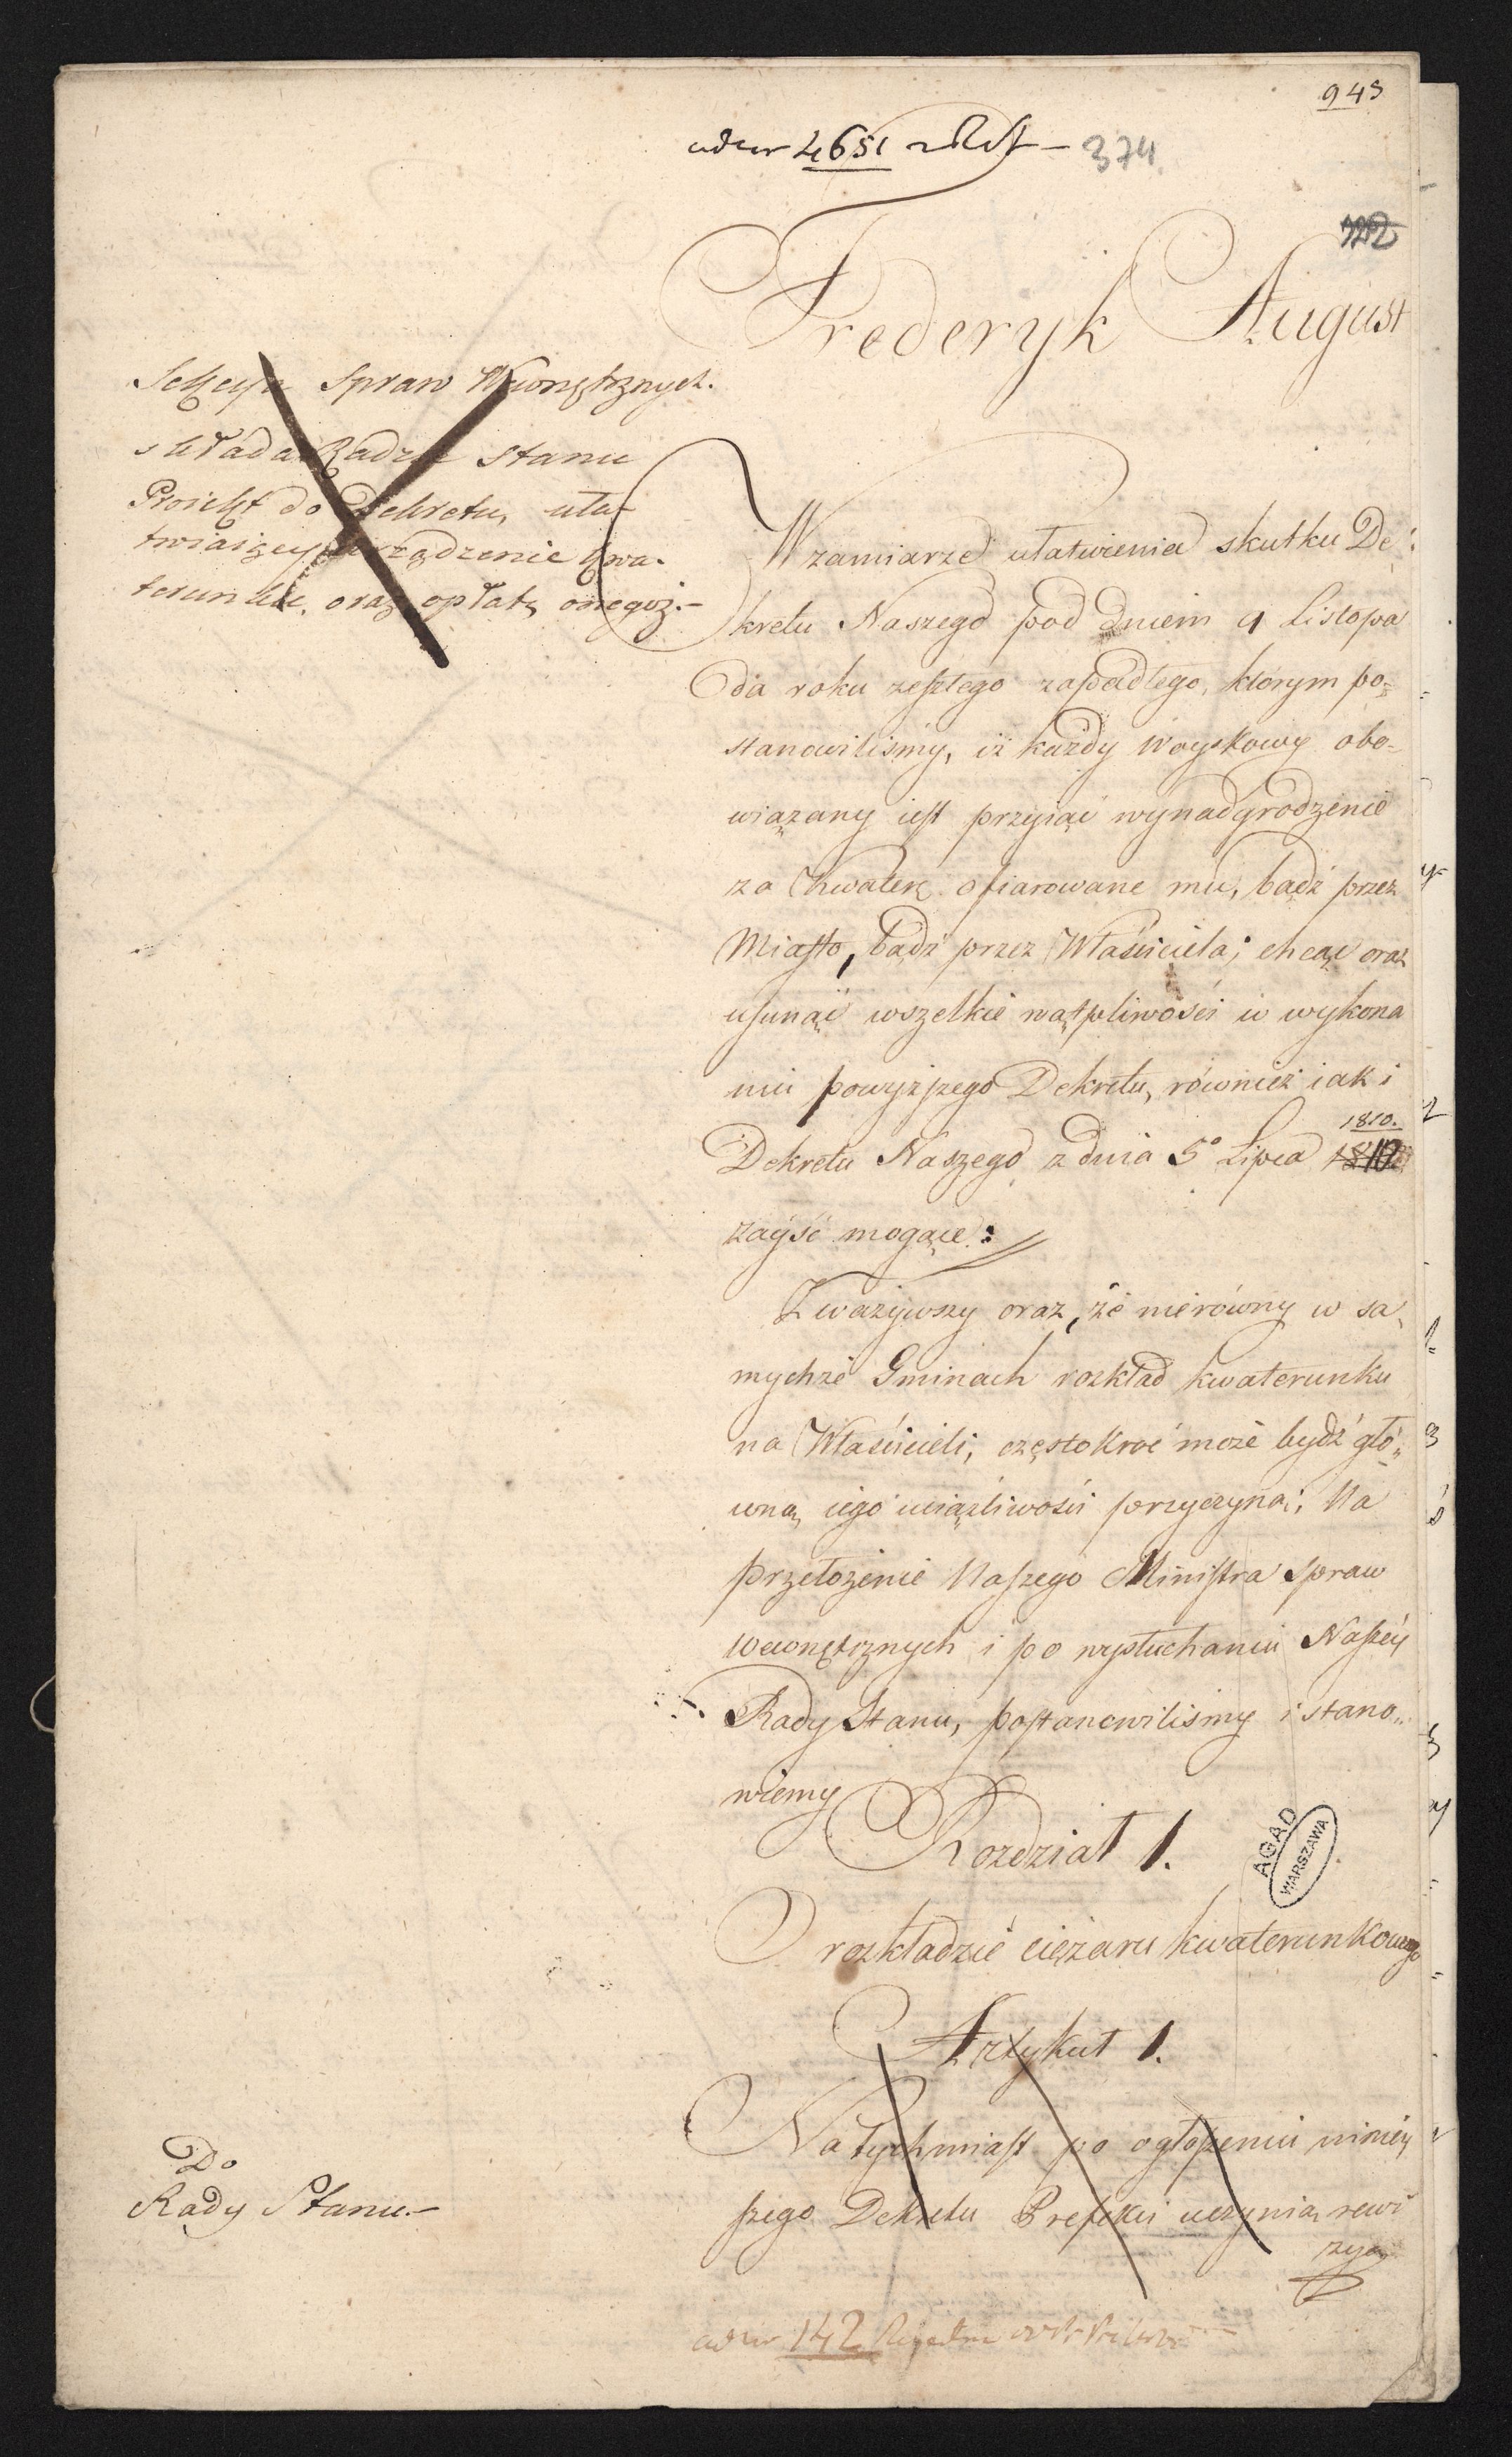 943
ad nr 4651
374
Frederyk August
Sekcya Spraw Wewnętrznych.
składa Radzie Stanu
Proiekt do Dekretu, uła-
twiaiący urządzenie kwa-
terunku, oraz opłatę onegoż.-
W zamiarze ułatwienia skutku De-
kretu Naszego pod dniem 9 Listopa
da roku zeszłego zapadłego, którym po-
stanowiliśmy, iż każdy Woyskowy obo-
wiązany iest przyiąć wynadgrodzenie
za kwaterę ofiarowane mu, bądź przez
Miasto, bądź przez Właściciela; chcąc oraz
usunąć wszelkie wątpliwości w wykona
niu powyższego Dekretu, również iak i
1810.
Dekretu Naszego z dnia 5° Lipca
zayść mogące:
Zważywszy oraz, że nierówny w sa-
mychże Gminach rozkład kwaterunku
na Właścicieli, częstokroć może bydź głó-
wną iego uciążliwości przyczyną; Na
przełożenie Naszego Ministra Spraw
wewnętrznych i po wysłuchaniu Naszéy
Rady Stanu, postanowiliśmy i stano-
wiemy
Rozdział 1.
AGAD
WARSZAWA
O rozkładzie ciężaru kwaterunkowego
Artykuł 1.
Natychmiast po ogłoszeniu niniey
szego Dekretu Prefekci uczynią rewi
zyą
Do
Rady Stanu.-
ad nr 142